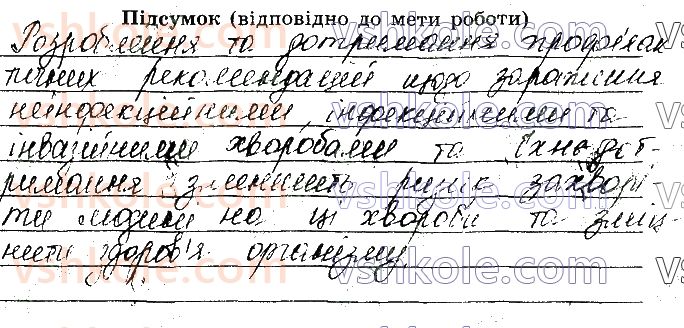 Підсумок (відповідно до мети роботи)
Розроблення та дотримання профілак
тичних рекомендацій щодо зараження
неінфекційними, інфекційними та
інвазійними хворобами та їхнє дот-
римання зменшить ризик захворі
ти людині на ці хвороби та зміц
нити здоров'я організму